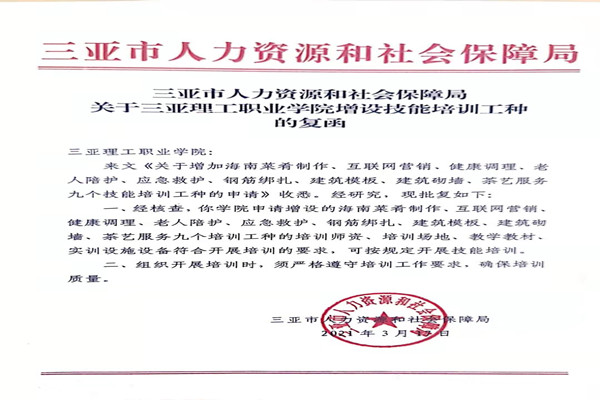 三亚市人力资源和社会保障局
三亚市人力资源和社会保障局
关于三亚理工职业学院增设技能培训工种
的复函
三亚理工职业学院：
来文《关于增加海南菜肴制作、互联网营销、健康调理、老
人陪护、应急救护、钢筋绑扎、建筑模板、建筑砌墙、茶艺服务
九个技能培训工种的申请》收悉。经研究，现批复如下：
一、经核查，你学院申请增设的海南菜肴制作、互联网营销、
健康调理、老人陪护、应急救护、钢筋绑扎、建筑模板、建筑砌
墙、茶艺服务九个培训工种的培训师资、培训场地、教学教材、
实训设施设备符合开展培训的要求，可按规定开展技能培训。
二、组织开展培训时，须严格遵守培训工作要求，确保培训
质量。
三亚市人力资源和社会保障局
2021年3月 日